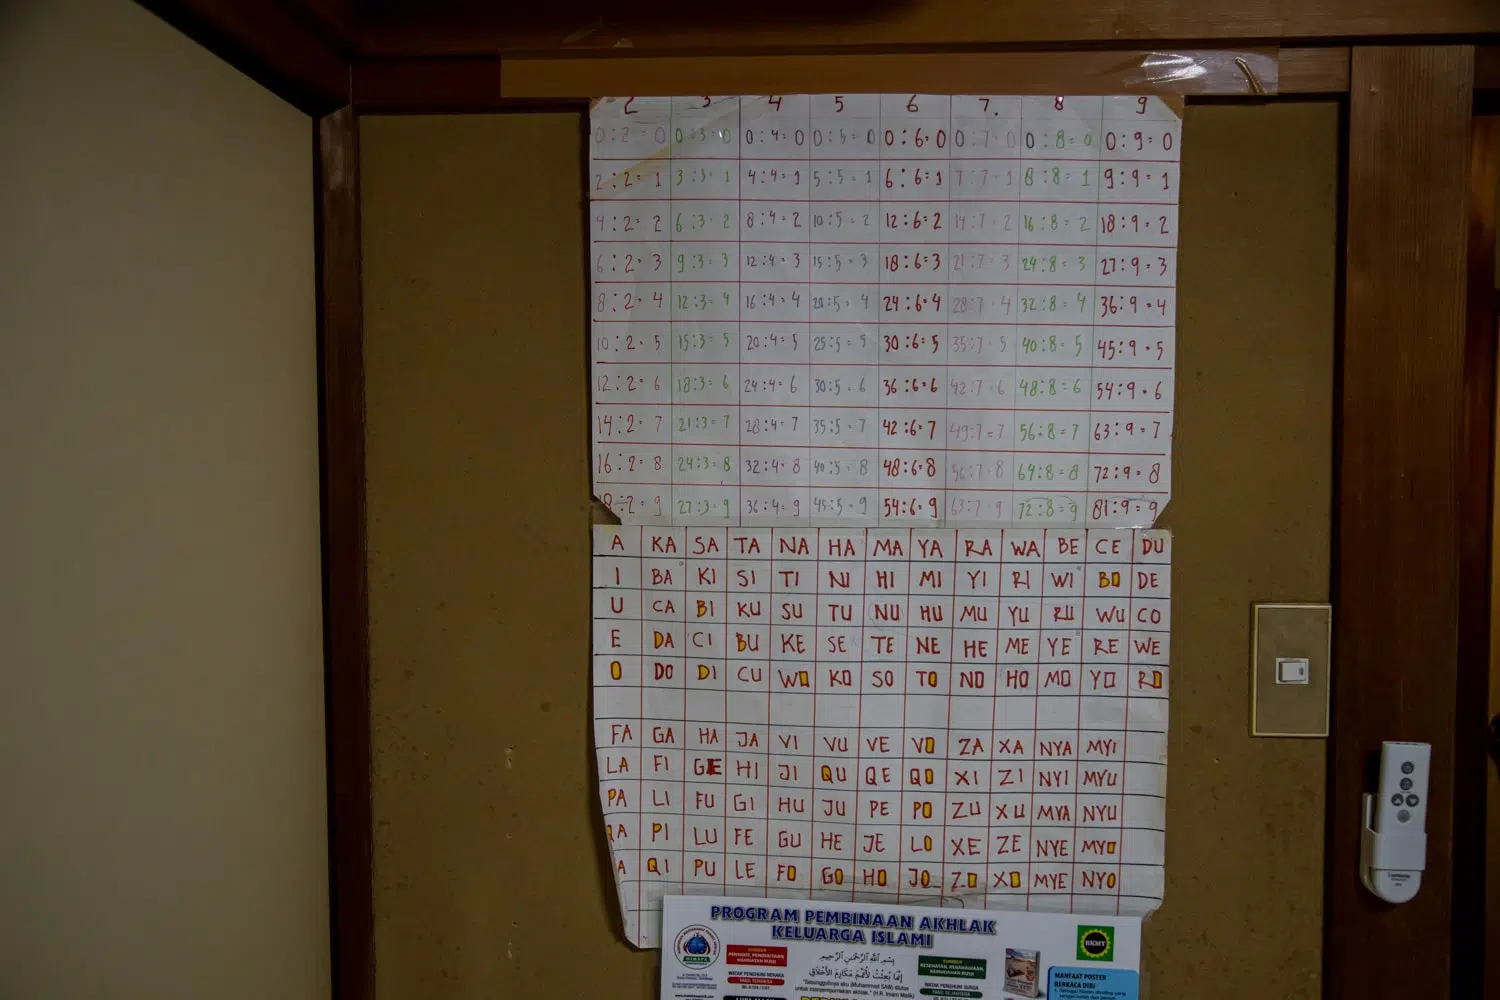 2 3 4 5 6 7. 8 9
0:2=0 0:3=0 0:4=0 0:5=0 0:6=0 0:7=0 0:8=0 0:9=0
2:2=1 3:3=1 4:4=1 5:5=1 6:6=1 7:7=1 8:8=1 9:9=1
4:2=2 6:3=2 8:4=2 10:5=2 12:6=2 14:7=2 16:8=2 18:9=2
6:2=3 9:3=3 12:4=3 15:5=3 18:6=3 21:7=3 24:8=3 27:9=3
8:2=4 12:3=4 16:4=4 20:5=4 24:6=4 28:7=4 32:8=4 36:9=4
10:2=5 15:3=5 20:4=5 25:5=5 30:6=5 35:7=5 40:8=5 45:9=5
12:2=6 18:3=6 24:4=6 30:5=6 36:6=6 42:7=6 48:8=6 54:9=6
14:2=7 21:3=7 28:4=7 35:5=7 42:6=7 49:7=7 56:8=7 63:9=7
16:2=8 24:3=8 32:4=8 40:5=8 48:6=8 56:7=8 64:8=8 72:9=8
18:2=9 27:3=9 36:4=9 45:5=9 54:6=9 63:7=9 72:8=9 81:9=9
A KA SA TA NA HA MA YA RA WA BE CE DU
I BA KI SI TI NI HI MI YI RI WI BO DE
U CA BI KU SU TU NU HU MU YU RU WU CO
E DA CI BU KE SE TE NE HE ME YE RE WE
O DO DI CU WO KO SO TO NO HO MO YO RO
FA GA HA JA VI VU VE VO ZA XA NYA MYI
LA FI GE HI JI QU QE QO XI ZI NYI MYU
PA LI FU GI HU JU PE PO ZU XU MYA NYU
QA PI LU FE GU HE JE LO XE ZE NYE MYO
A QI PU LE FO GO HO JO ZO XO MYE NYO
PROGRAM PEMBINAAN AKHLAK
KELUARGA ISLAMI
BKMT
SUMBER
PENYAKIT, PENDERITAAN,
HAMBATAN RIZQI
WATAK PENGHUNI NERAKA
بِسْمِ اللَّهِ الرَّحْمَنِ الرَّحِيمِ
إِنَّمَا بُعِثْتُ لِأُتَمِّمَ مَكَارِمَ الْأَخْلَاقِ
"Sesungguhnya aku (Muhammad SAW) diutus
untuk menyempurnakan akhlak." (H.R. Imam Malik)
SUMBER
KESEHATAN, KEBAHAGIAAN,
KEMUDAHAN RIZQI
WATAK PENGHUNI SURGA
MANFAAT POSTER
BERKACA DIRI